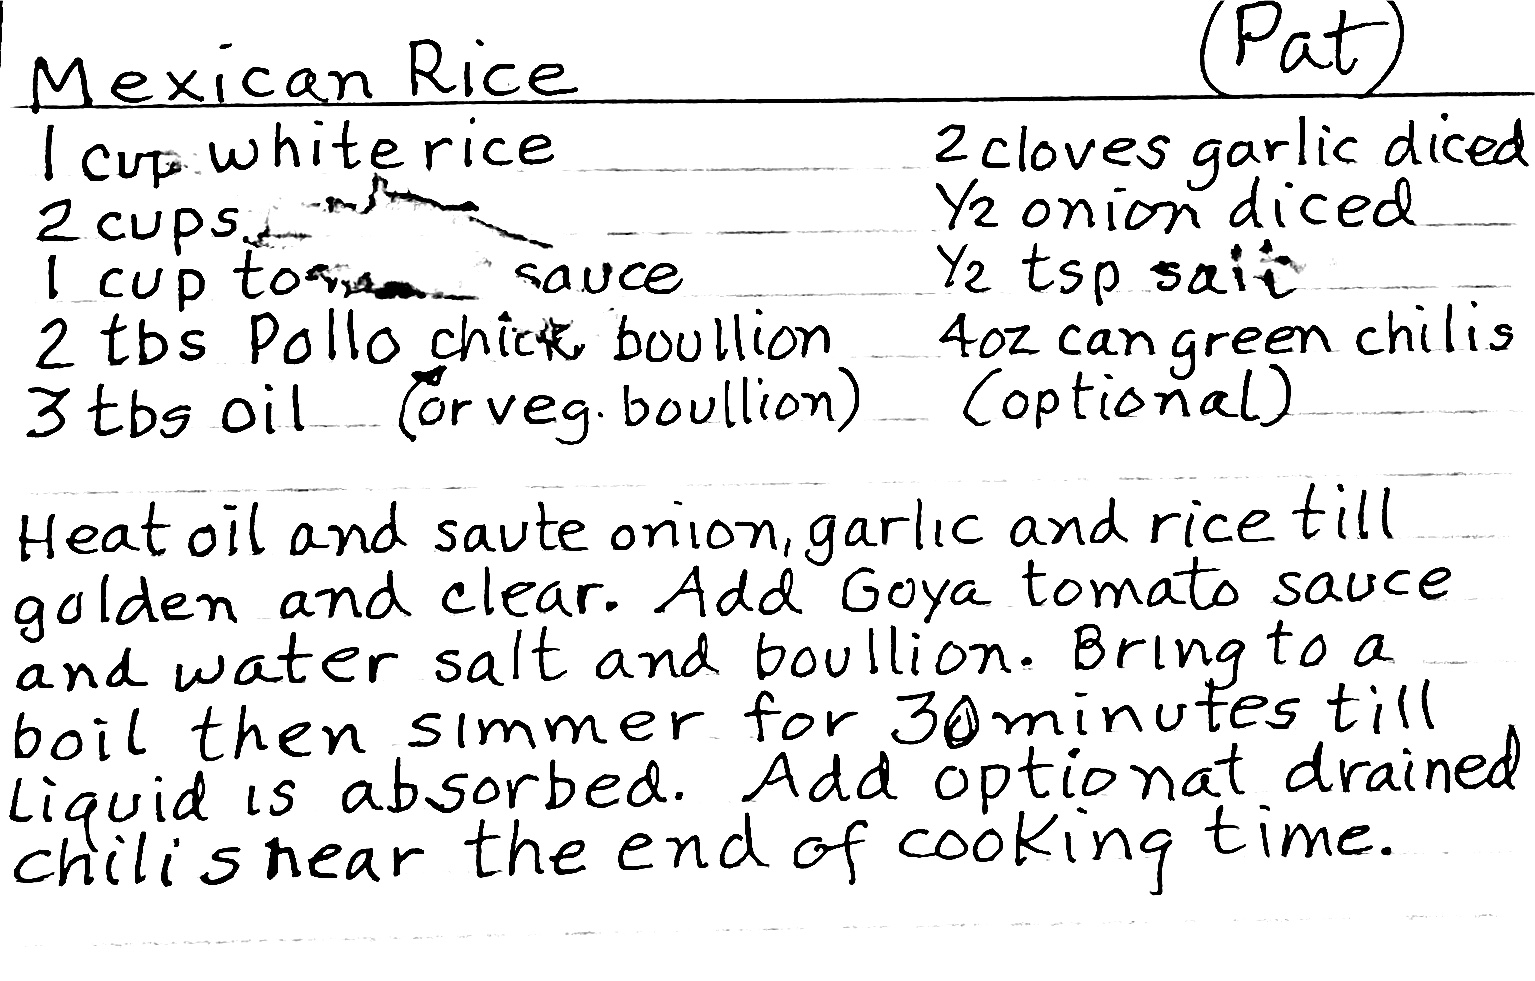 Mexican Rice (Pat)
1 cup white rice
2 cups
1 cup sauce
2 tbs Pollo chick boullion
3 tbs oil (or veg. boullion)
2 cloves garlic diced
1/2 onion diced
1/2 tsp salt
4oz can green chilis
(optional)
Heat oil and saute onion, garlic and rice till
golden and clear. Add Goya tomato sauce
and water salt and boullion. Bring to a
boil then simmer for 30 minutes till
Liquid is absorbed. Add optional drained
chilis near the end of cooking time.